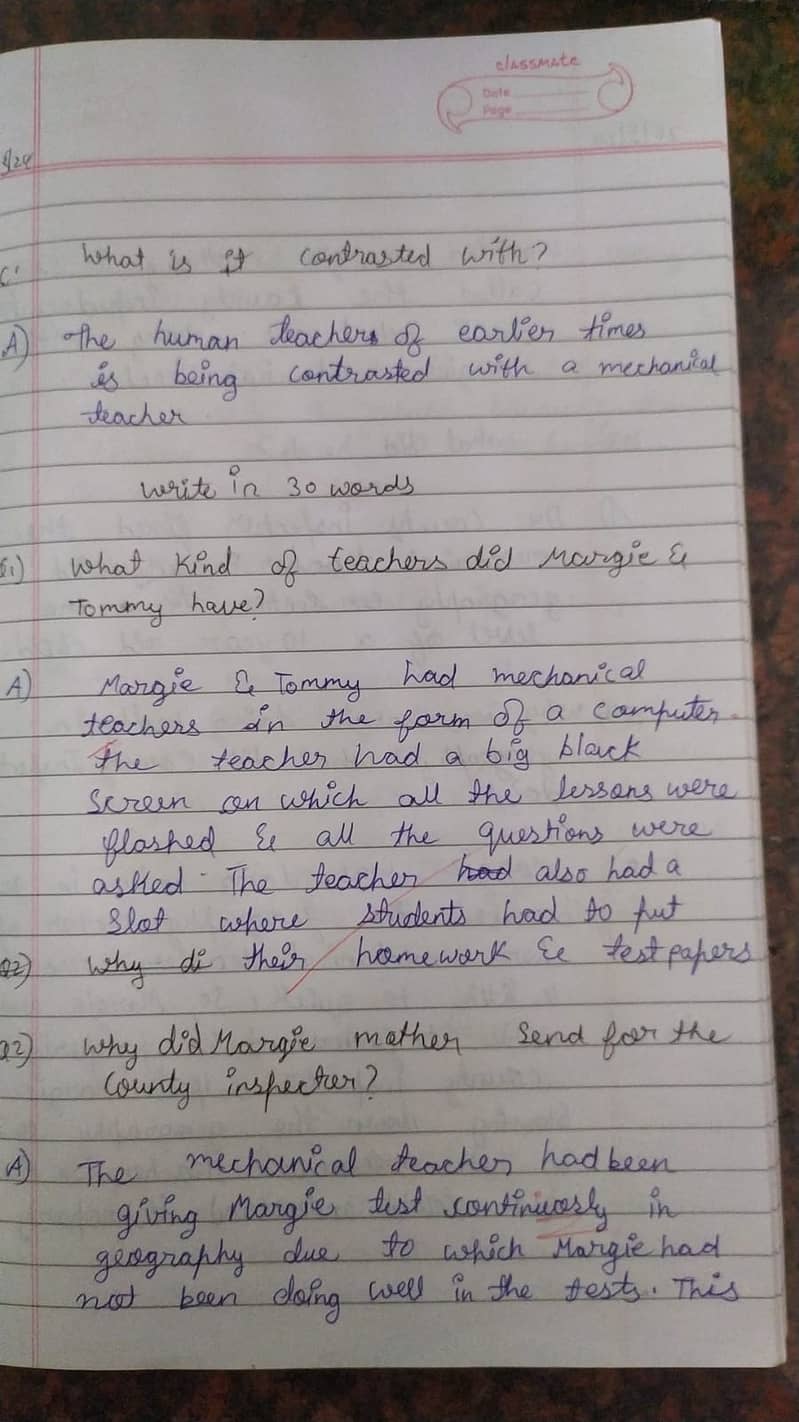 classmate
Date
Page
What is it contrasted with?
A) The human teachers of earlier times
is being contrasted with a mechanical
teacher
Write in 30 words
What kind of teachers did Margie &
Tommy have?
A) Margie & Tommy had mechanical
teachers in the form of a computer.
the teacher had a big black
screen on which all the lessons were
flashed & all the questions were
asked. The teacher had also had a
slot where students had to put
Q2) Why di their homework & test papers
Q2) Why did Margie mother send for the
County inspecter?
A) The mechanical teacher had been
giving Margie test continuosly in
geography due to which Margie had
not been doing well in the tests. This